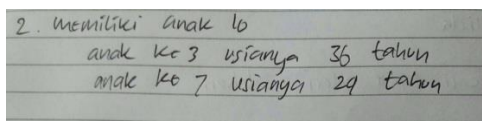 2. memiliki anak 10
anak ke 3 usianya 36 tahun
anak ke 7 usianya 29 tahun